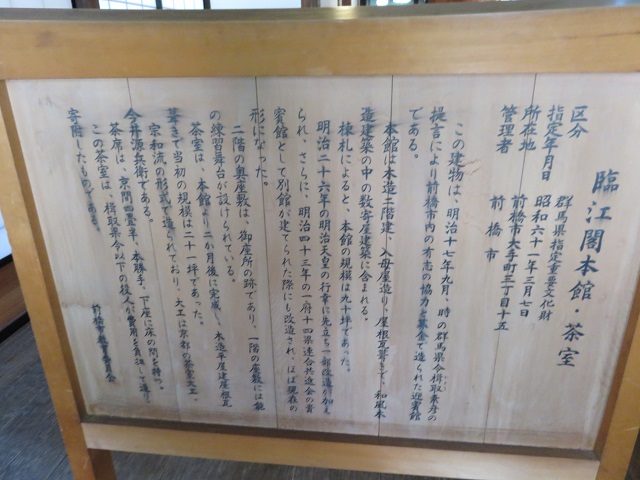 臨江閣本館・茶室
区分　群馬県指定重要文化財
指定年月日　昭和六十一年三月七日
所在地　前橋市大手町三丁目十五
管理者　前橋市
この建物は、明治十七年九月、時の群馬県令楫取素彦の
提言により前橋市内の有志の協力と募金で造られた迎賓館
である。
本館は木造二階建、入母屋造り、屋根瓦葺きで、和風木
造建築の中の数寄屋建築に含まれる。
棟札によると、本館の規模は九十坪であった。
明治二十六年の明治天皇の行幸に先立ち一部改造が加え
られ、さらに、明治四十三年の一府十四県連合共進会の貴
賓館として別館が建てられた際にも改造され、ほぼ現在の
形になった。
二階の奥座敷は、御座所の跡であり、一階の座敷には能
の練習舞台が設けられている。
茶室は、本館より二か月後に完成し、木造平屋建屋根瓦
葺きで当初の規模は二十一坪であった。
宗和流の形式で造られており、大工は京都の茶室大工、
今井源兵衛である。
茶席は、京間四畳半、本勝手、下座に床の間を持つ。
この茶室は、楫取県令以下の役人が費用を負担して造り
寄附したものである。
前橋市教育委員会